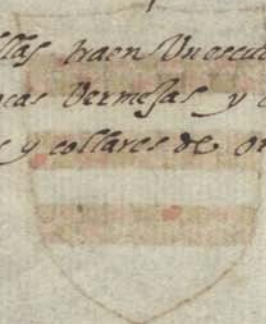 llas traen Un escud
ncas Vermejas y
s y collares de or